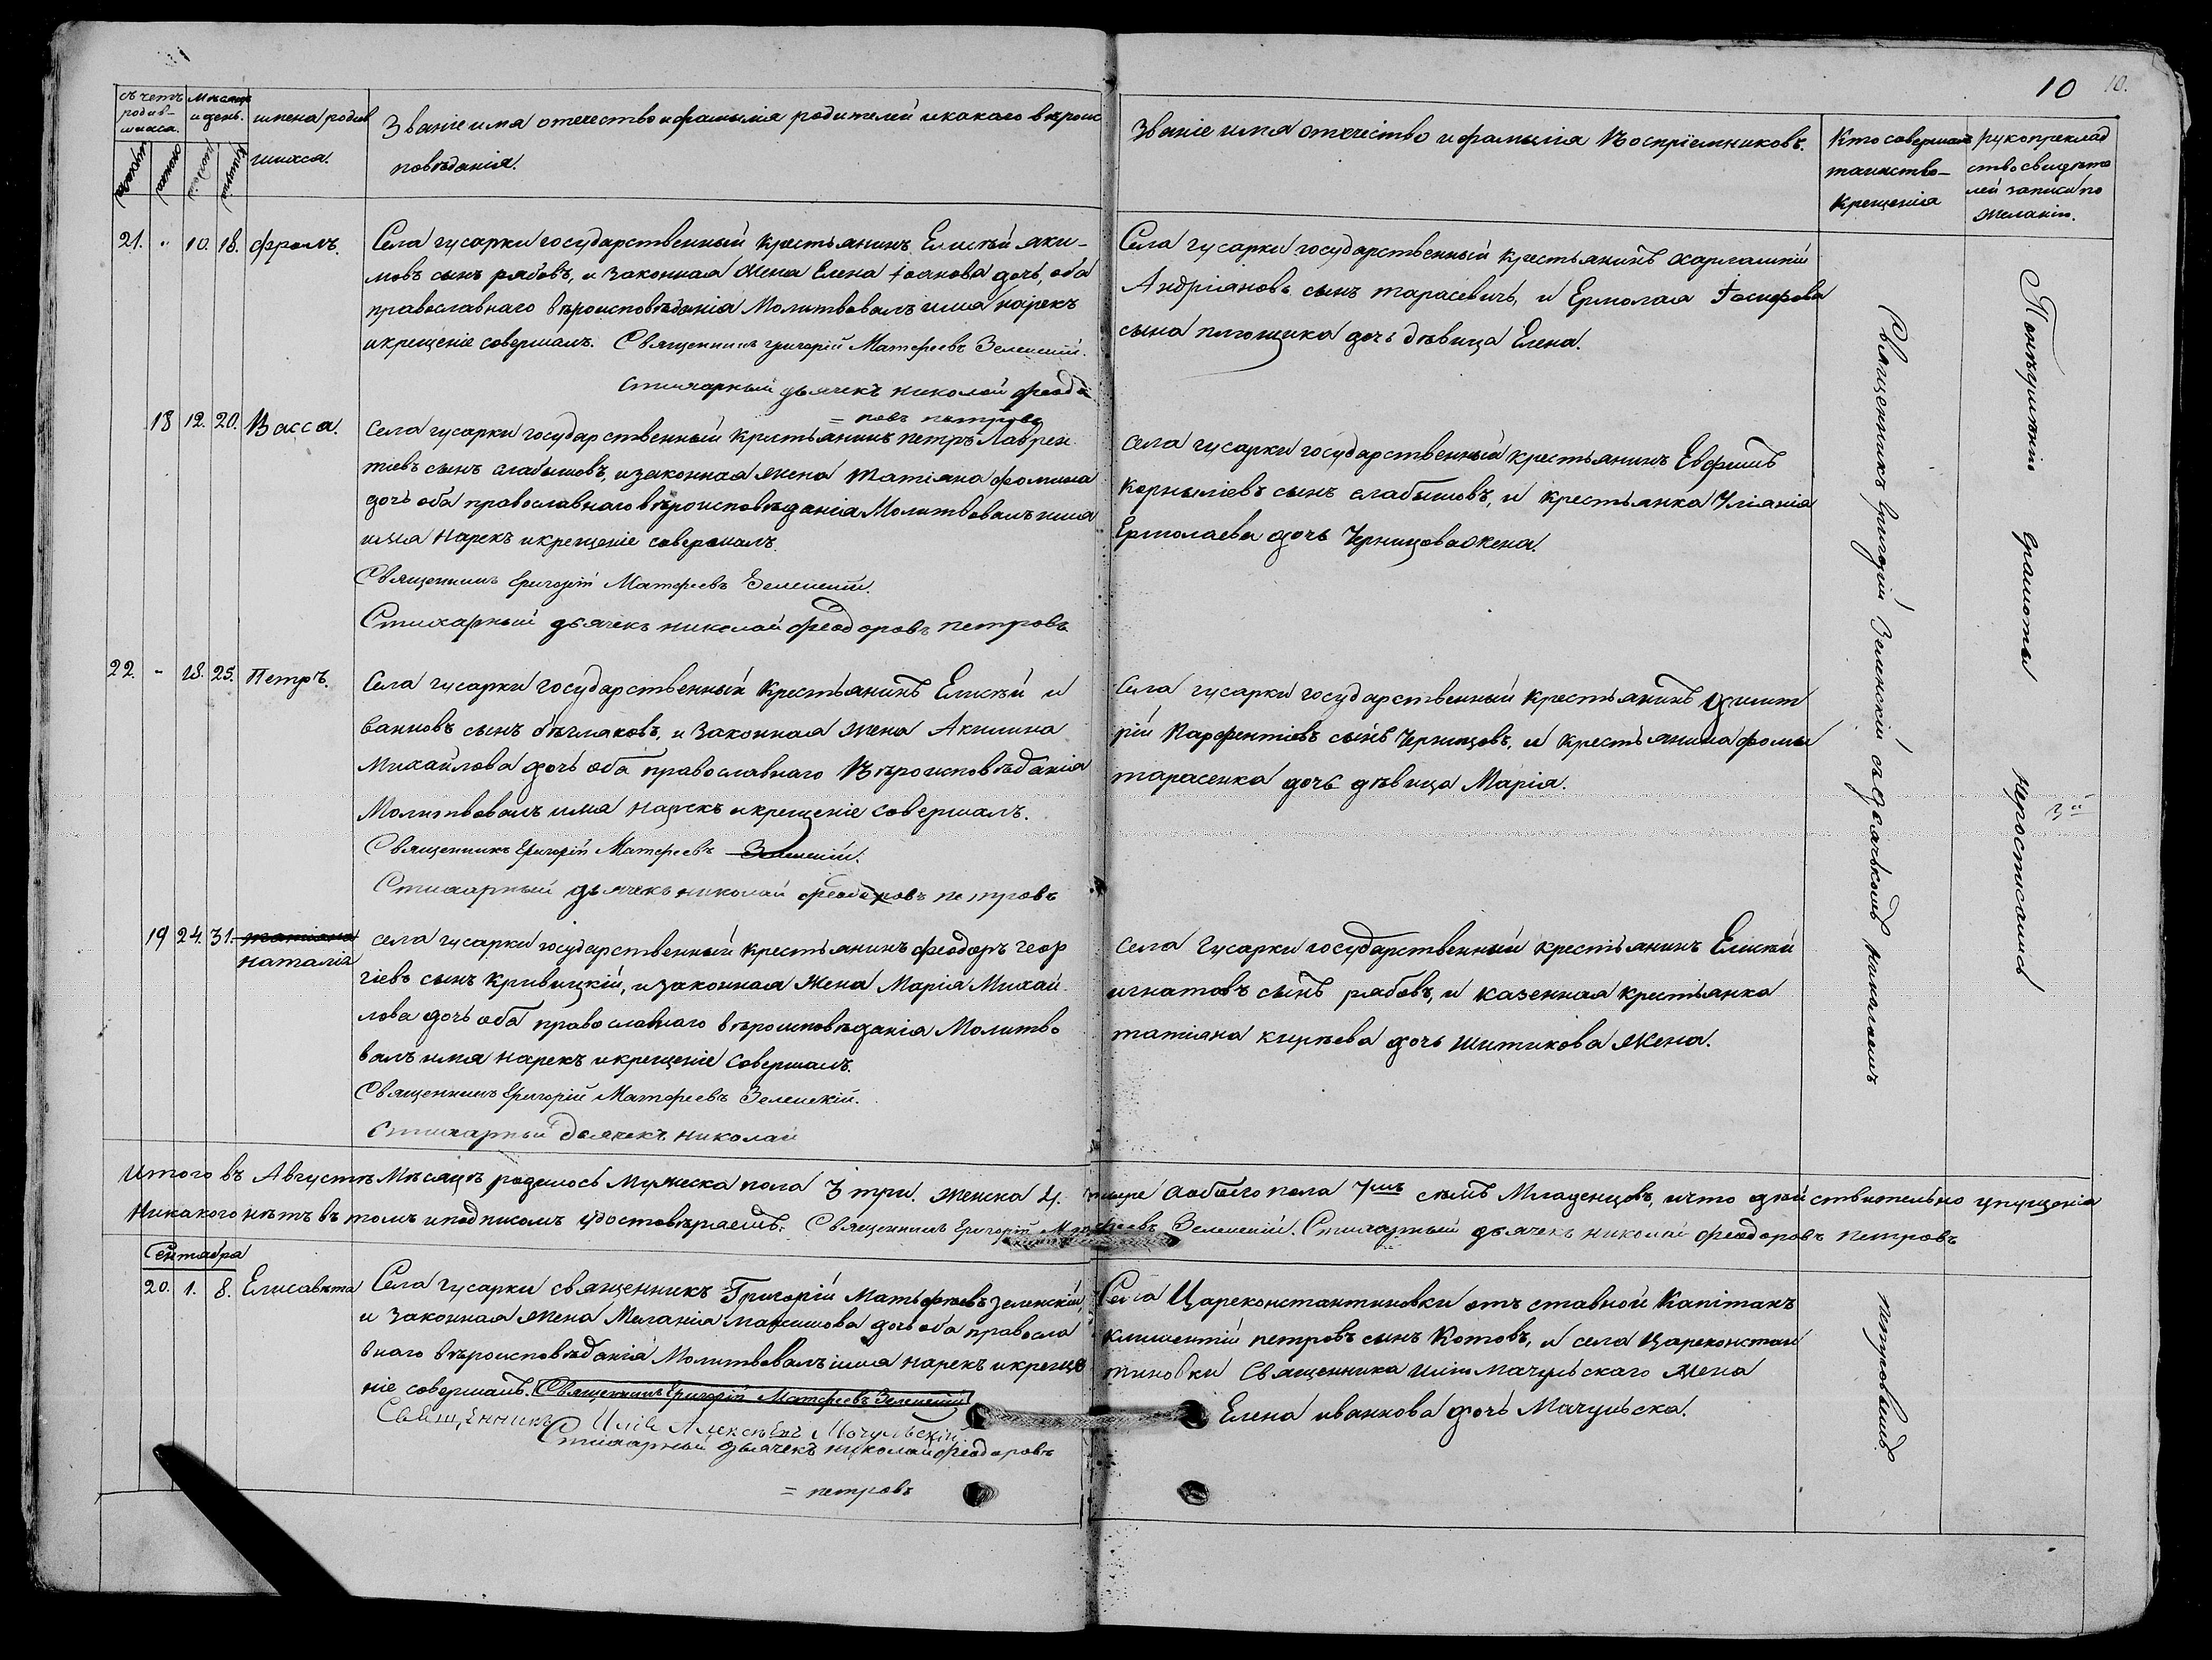 10 10.
съчетъ родив-шихся.
Мѣсяцъ и день.
имена родив
шихся.
Званіе имя отечество и фамылія родителей и какаго вѣроис
повѣданія.
Званіе имя отечество и фамылія Воспріемниковъ.
Кто совершалъ
таинство
крещенія
рукоприклад
ство свидѣте
лей записи по
желанію.
21. " 10. 18. Фролъ.
Села гусарки государственный крестьянинъ Елисѣй яки-
мовъ сынъ рябовъ, и законная жена Елена іоанова дочь, оба
православнаго вѣроисповѣданія Молитвовалъ имя нарекъ
и крещеніе совершалъ. Священникъ григорій Матфеевъ Зеленскій.
Стихарный дьячекъ николай феодо
= ровъ петровъ
Села гусарки государственный крестьянинъ харлампій
Андріяновъ сынъ тарасевичъ, и Ермолая Іосифова
сына плющика дочь дѣвица Елена.
18 12. 20. Васса.
Села гусарки государственный крестьянинъ петръ Лаврен
тіевъ сынъ слабышовъ, и законная жена татіяна фомина
дочь оба православнаго вѣроисповѣданія Молитвовалъ имя
имя Нарекъ и крещеніе совершалъ.
Священникъ Григорій Матфеевъ Зеленскій.
Стихарный дьячекъ николай феодоровъ петровъ
села гусарки государственный крестьянинъ Евфимъ
Корныліевъ сынъ слабышовъ, и крестьянка Уліанія
Ермолаева дочь Черницова жена.
22. - 18. 25. Петръ.
Села гусарки государственный крестьянинъ Елисѣй и
ванновъ сынъ бѣгляковъ, и законная жена Акилина
Михайлова дочь оба православнаго Вѣроисповѣданія
Молитвовалъ имя нарекъ и крещеніе совершалъ.
Священникъ Григорій Матфеевъ Зеленскій.
Стихарный дьячекъ николай феодоровъ петровъ
Села гусарки государственный крестьянинъ Димит
рій Парфентіевъ сынъ Черницовъ, и крестьянина фомы
тарасенка дочь дѣвица Марія.
19 24. 31. татіана
наталія
села гусарки государственный крестьянинъ феодоръ геор
гіевъ сынъ кривицкій, и законная жена Марія Михай
лова дочь оба православнаго вѣроисповѣданія Молитво
валъ имя нарекъ и крещеніе совершалъ.
Священникъ Григорій Матфеевъ Зеленскій.
Стихарный дьячекъ николай
села гусарки государственный крестьянинъ Елисѣй
игнатовъ сынъ рябовъ, и казенная крестьянка
татіяна кирѣева дочь шитикова жена.
Священникъ Григорій Зеленскій съ дьячькомъ николаемъ
петровымъ.
По неумѣнію грамоты неросписались
3й
Итого въ Августѣ Мѣсяцѣ родилось Мужеска пола 3 три. женска 4. четыре а обоего пола 7мь семь Младенцовъ, и что дѣйствительно упущенія
Никакого нѣтъ въ томъ и подписомъ удостовѣряемъ. Священникъ Григорій Матфеевъ Зеленскій. Стихарный дьячекъ николай феодоровъ петровъ
Сентября
20. 1. 8. Елисавета
Села гусарки священникъ Григорій Матьфѣевъ зеленскій,
и законная жена Меланія максимова дочь оба правосла
внаго вѣроисповѣданія Молитвовалъ имя нарекъ и креще
ніе совершалъ. Священникъ Григорій Матфеевъ Зеленскій
Священникъ Илія Алексѣевъ Мачульскій
Стихарный дьячекъ николай феодоровъ
= петровъ
Села Цареконстантиновки отъ ставной Капітанъ
климентій петровъ сынъ Котовъ, и села Цареконстан
тиновки Священника иліи мачульскаго жена
Елена иванкова дочь Мачульска.